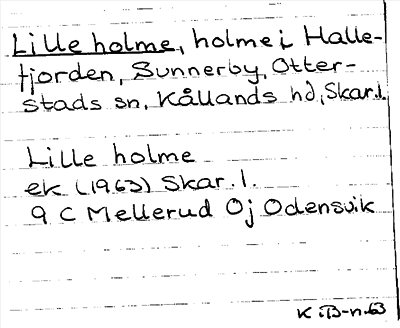 Lille holme, holme i Halle-
fjorden, Sunnerby, Otter-
stads sn, Kållands hd, Skar.l.
Lille holme
ek (1963) Skar. l.
9 C Mellerud Oj Odensvik